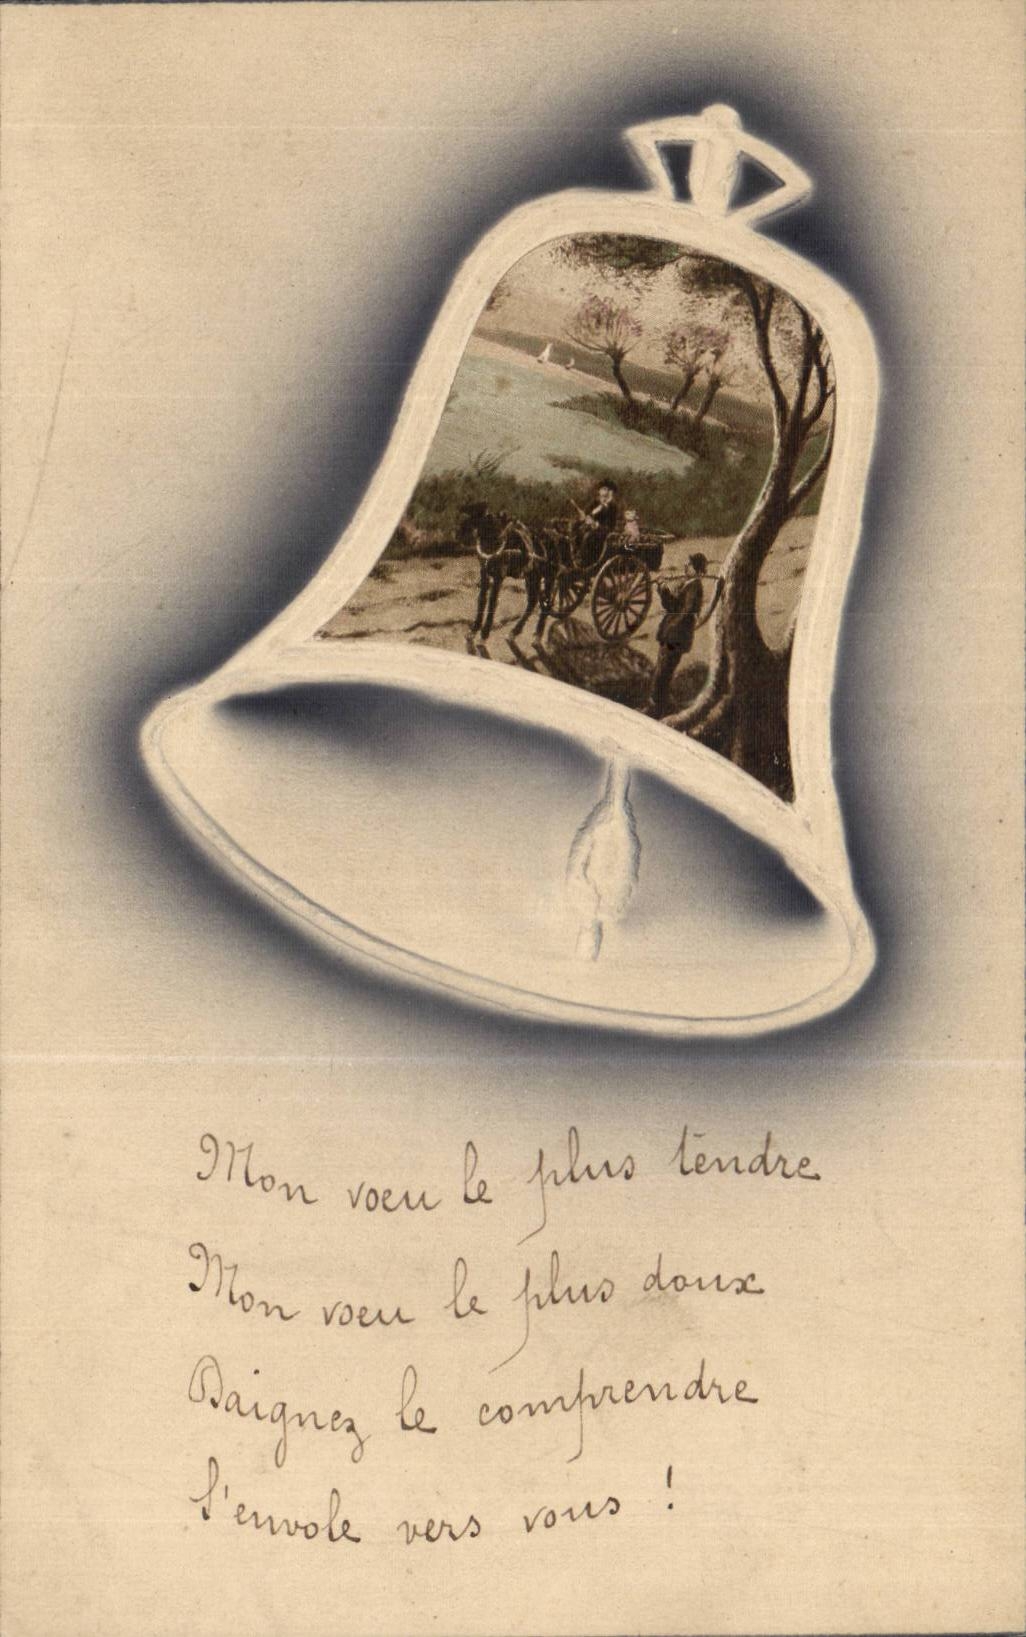 Mon voeu le plus tendre
Mon voeu le plus doux
Daignez le comprendre
S'envole vers vous !